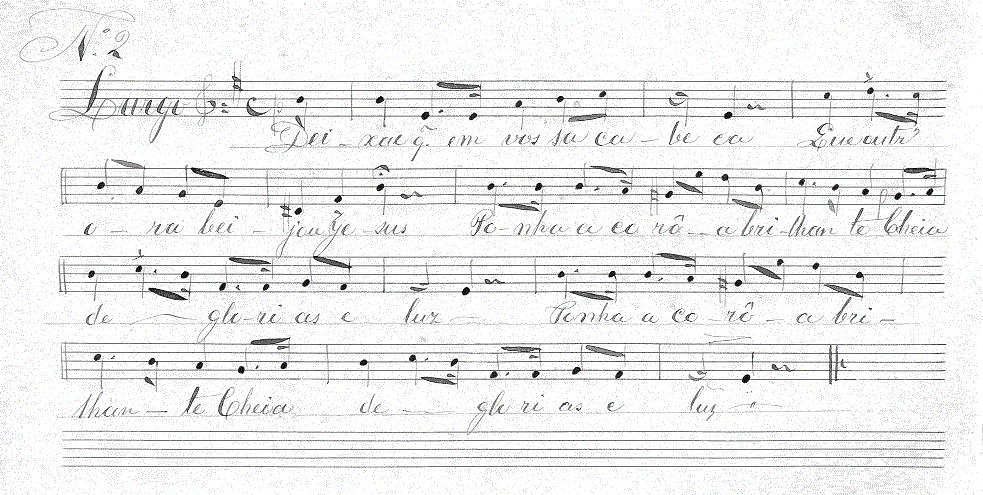 Nº 2
Largo
Dei - xae q̃. em vos sa ca - be ca En contr'
o - ra bei - jou Je - sus Po - nha a co rô - a bri - lhan te Cheia
de glo - ri as e luz Ponha a co - rô - a bri -
lhan - te Cheia de - glo ri as e luz